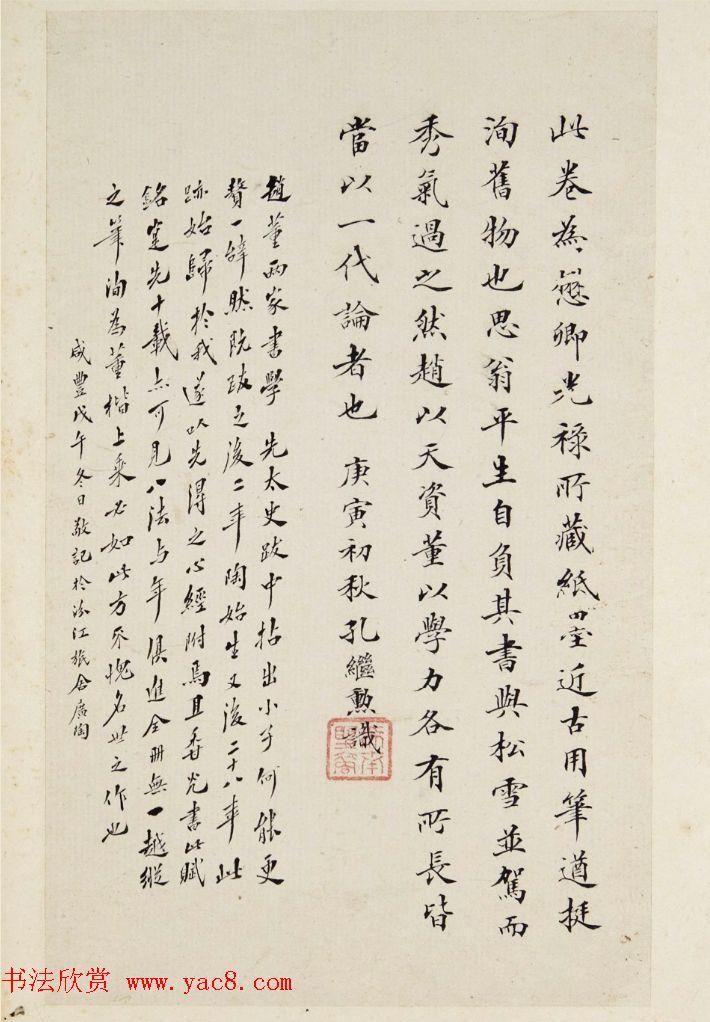 此卷為懋卿光祿所藏紙墨近古用筆遒挺
洵舊物也思翁平生自負其書與松雪並駕而
秀氣過之然趙以天資董以學力各有所長皆
當以一代論者也 庚寅初秋孔繼勲識
趙董兩家書學 先太史跋中拈出小子何能更
贅一辭然阮跋之後二年陶始生又後二十八年此
跡始歸於我遂以先得之心經附焉且香光書此賦
銘寔先十載亦可見八法与年俱進全冊無一越縱
之筆洵為董楷上乘必如此方不愧名世之作也
咸豐戊午冬日敬記於汾江旅舍廣陶
书法欣赏 www.yac8.com